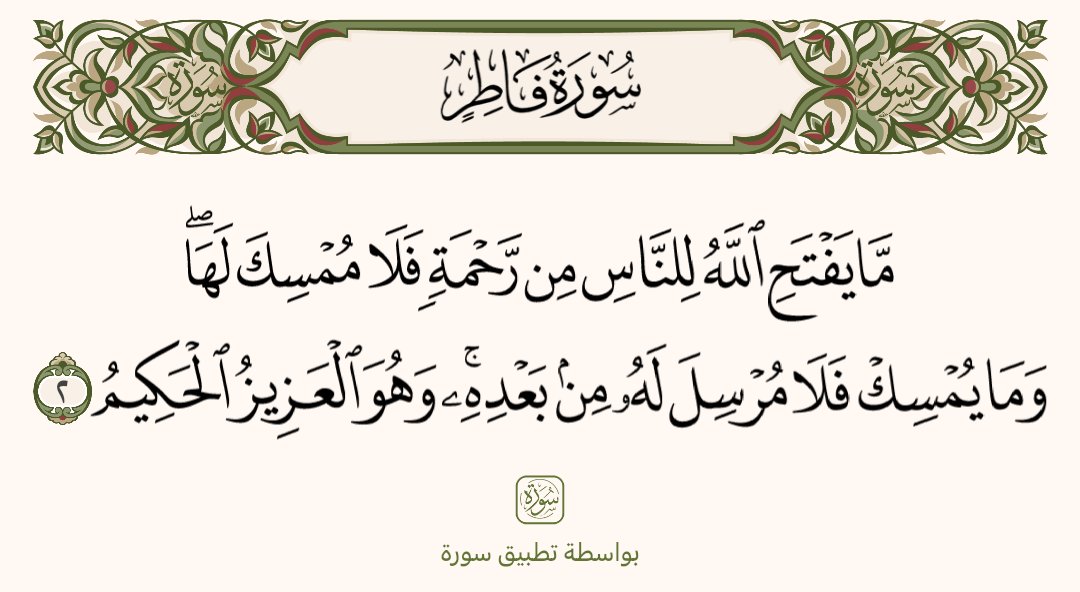 سُورَةُ فَاطِرٍ
سُورَة
سُورَة
مَّا يَفۡتَحِ ٱللَّهُ لِلنَّاسِ مِن رَّحۡمَةٖ فَلَا مُمۡسِكَ لَهَاۖ
وَمَا يُمۡسِكۡ فَلَا مُرۡسِلَ لَهُۥ مِنۢ بَعۡدِهِۦۚ وَهُوَ ٱلۡعَزِيزُ ٱلۡحَكِيمُ ٢
سُورَة
بواسطة تطبيق سورة